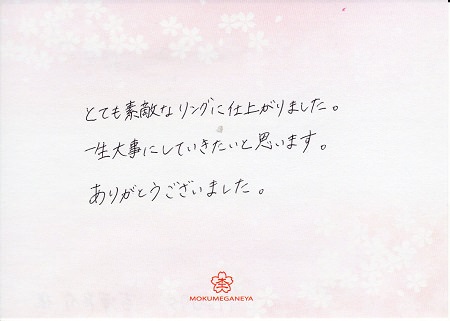 とても素敵なリングに仕上がりました。
一生大事にしていきたいと思います。
ありがとうございました。
MOKUMEGANEYA